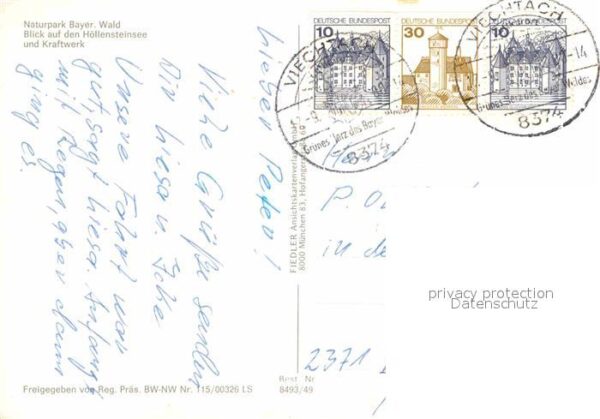 Naturpark Bayer. Wald
Blick auf den Höllensteinsee
und Kraftwerk
Lieber Peter!
Viele Grüße senden
Dir Liesa u. Ilke
Unsere Fahrt war
gut sagt Liesa. Anfangs
mit Regen, aber dann
ging es.
FIEDLER Ansichtskartenverlag
8000 München 83, Hofangerstraße 69
Freigegeben von Reg. Präs. BW-NW Nr. 115/00326 LS
Best. Nr.
8493/49
DEUTSCHE BUNDESPOST
10
DEUTSCHE BUNDESPOST
30
DEUTSCHE BUNDESPOST
10
VIECHTACH
Grünes Herz des Bayer. Waldes
8374
VIECHTACH
-14
Grünes Herz des Waldes
8374
P.
in de
2371
privacy protection
Datenschutz